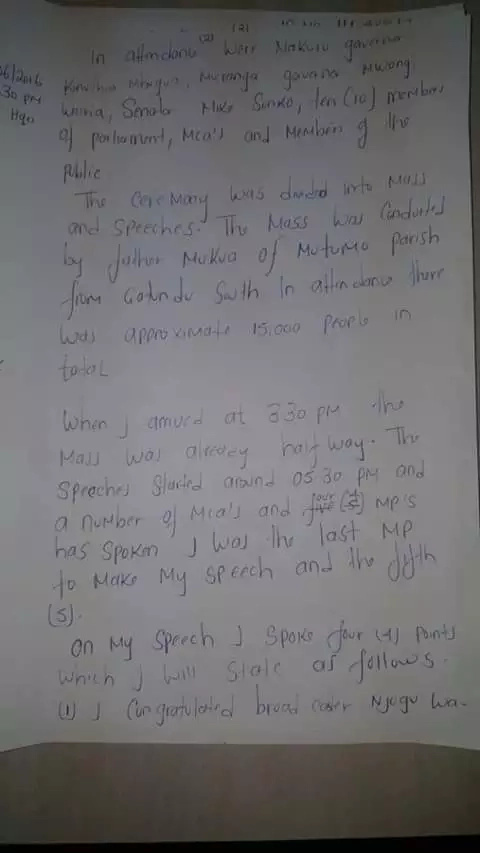 (2)
In attendance (2) were Nakuru governor
06/2016 Kinuthia Mbugua, Muranga governor Mwangi
30 pm wairia, Senator Mike Sonko, ten (10) members
Hqrs of parliament, Mca's and Members of the
public
The Ceremony was divided into Mass
and speeches. The Mass was Conducted
by father Mukua of Mutumo parish
from Gatundu South In attendance there
was approximate 15,000 people in
total
When I arrived at 330 PM the
Mass was already half way. The
Speeches started around 05.30 PM and
a number of Mca's and four (4) MP's
has spoken I was the last MP
to Make My speech and the fifth
(5).
On My Speech I spoke four (4) points
which I will state as follows.
(1) I Congratulated broad caster Njogu wa-